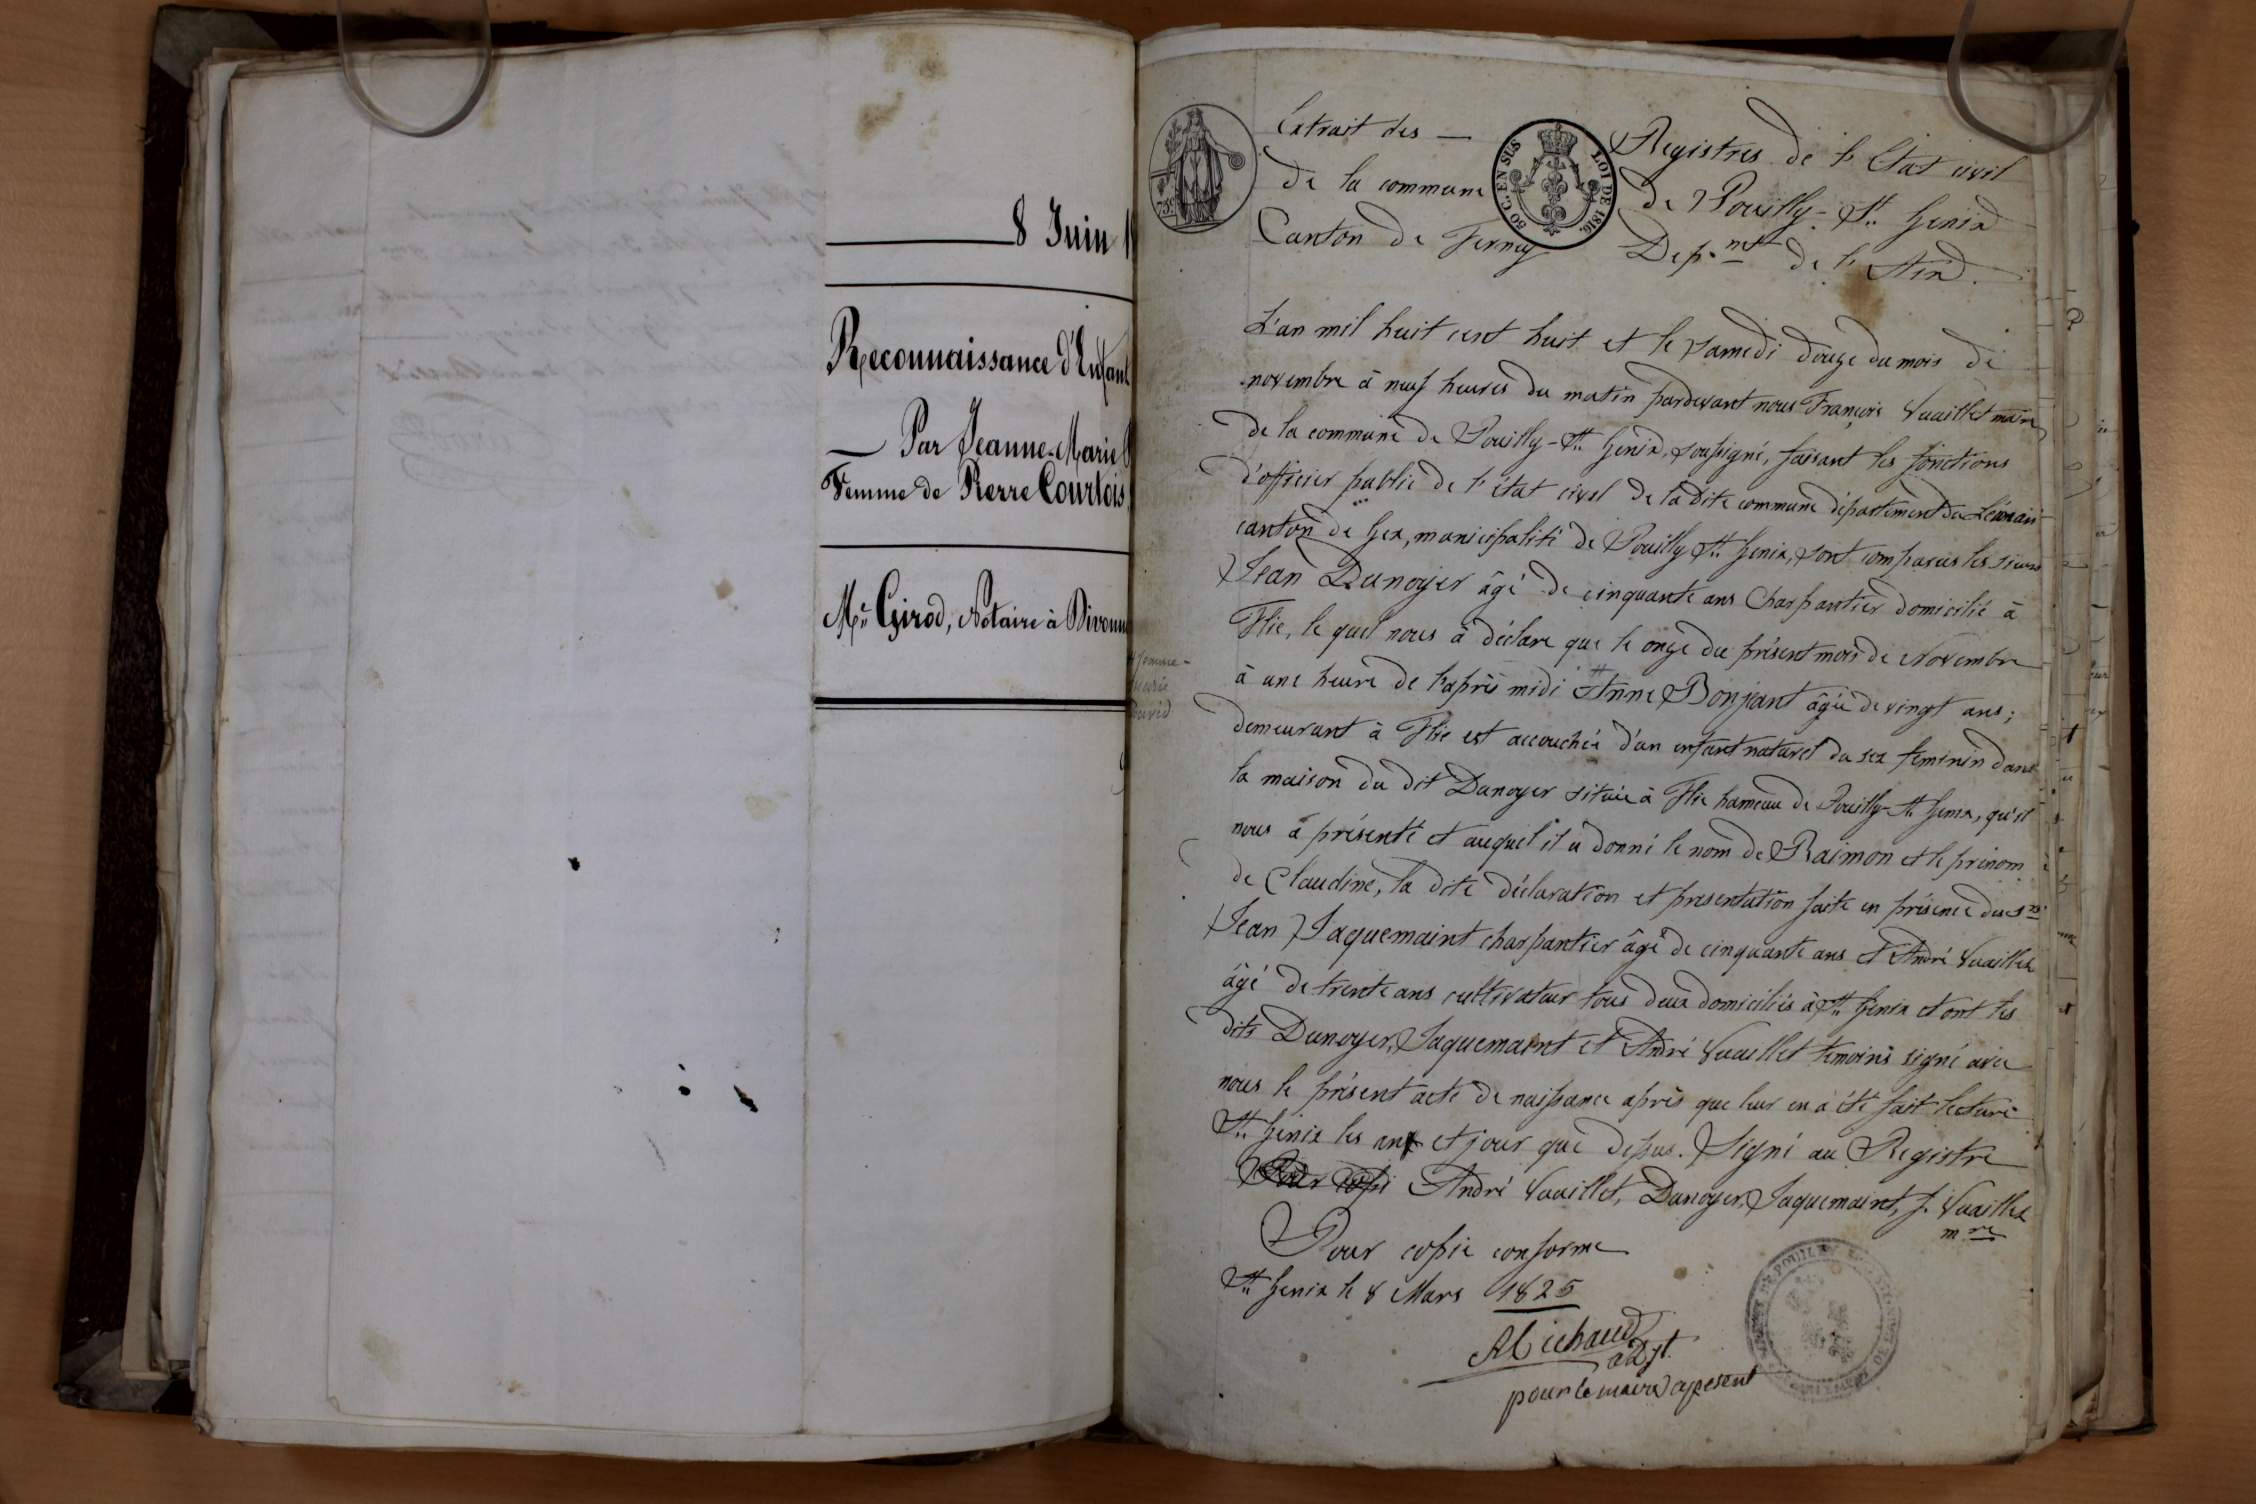 8 Juin
Reconnaissance d'Enfant
Par Jeanne-Marie
Femme de Pierre Courtois
Me. Girod, Notaire à Divonne
75c
50 C. EN SUS
LOI DE 1816.
Extrait des — Registres de l'Etat civil
de la commune de Pouilly-St. Genix
Canton de Ferney Depnt. de l'Ain.
L'an mil huit cent huit et le samedi douze du mois de
novembre à neuf heures du matin pardevant nous François Vuaillet maire
de la commune de Pouilly-St. Genix, soussigné, faisant les fonctions
d'officier public de l'état civil de la dite commune département du Léman
canton de Gex, municipalité de Pouilly St. Genix, sont comparus les sieurs
Jean Dunoyer âgé de cinquante ans Charpantier domicilié à
Flie, le quel nous à déclare que le onze du présent mois de Novembre
à une heure de l'après midi # Anne Bonjant âgée de vingt ans;
demeurant à Flie est accouchée d'un enfant naturel du sex feminin dans
la maison du dit Dunoyer située à Flie hameau de Pouilly-St. Genix, qu'il
nous à présenté et auquel il à donné le nom de Raimon et le prénom
de Claudine, la dite déclaration et presentation faite en présence du Sr.
Jean Jaquemaint charpantier âgé de cinquante ans et André Vuaillet
âgé de trente ans cultivateur tous deux domiciliés à St. Genix et ont les
dits Dunoyer, Jaquemaint et André Vuaillet temoins signé avec
nous le présent acte de naissance après que leur en à été fait lecture
St. Genix les an et jour que dessus. Signé au Registre
André Vuaillet, Dunoyer, Jaquemaint, f. Vuaillet
mre
Pour copie conforme
St. Genix le 8 Mars 1825
Michaud
adjt.
pour le maire apesent